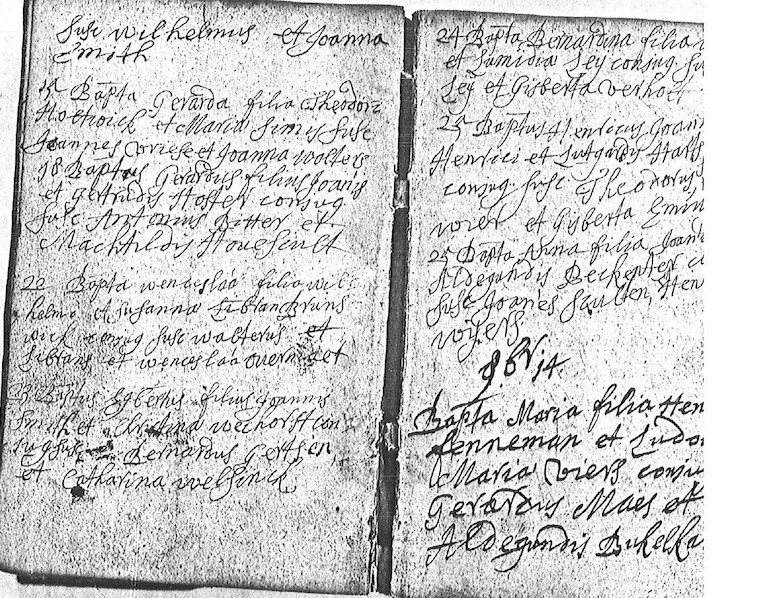 susc wilhelmus et Joanna
Smith
15 Bapta Gerarda filia Theodori
Holtwick et Maria Simis susc
Joannes Vriese et Joanna wolters
18 Baptus Gerardus filius Joanis
et gertrudis Hoster conjug
susc Antonius Ritter et
Machtildis Houescult
22 Bapta wenceslaa filia wil:
helmi et Susanna Sibtan Bruns
wick conjug susc walterus et
Sibtans et wenceslaa
23 Baptus Egbertus filius Joannis
Smith et Christina wechorst con
jug susc Bernardus Gertsen
et Catharina welsinck
24 Bapta Bernardina filia
et Sey conjug su
Sey et Gisberta verhoet
25 Baptus Henricus Joan
Henrici et Lutgardis
conjug susc Theodorus
et Gisberta
25 Bapta Anna filia Joan
Aldegundis Beckenter
susc Joanes Scutten, Hen
wisers
9br 14
Bapta Maria filia Hen
Lenneman et Ludo
Maria Viers conju
Gerardus Maes et
Aldegundis Bukelka